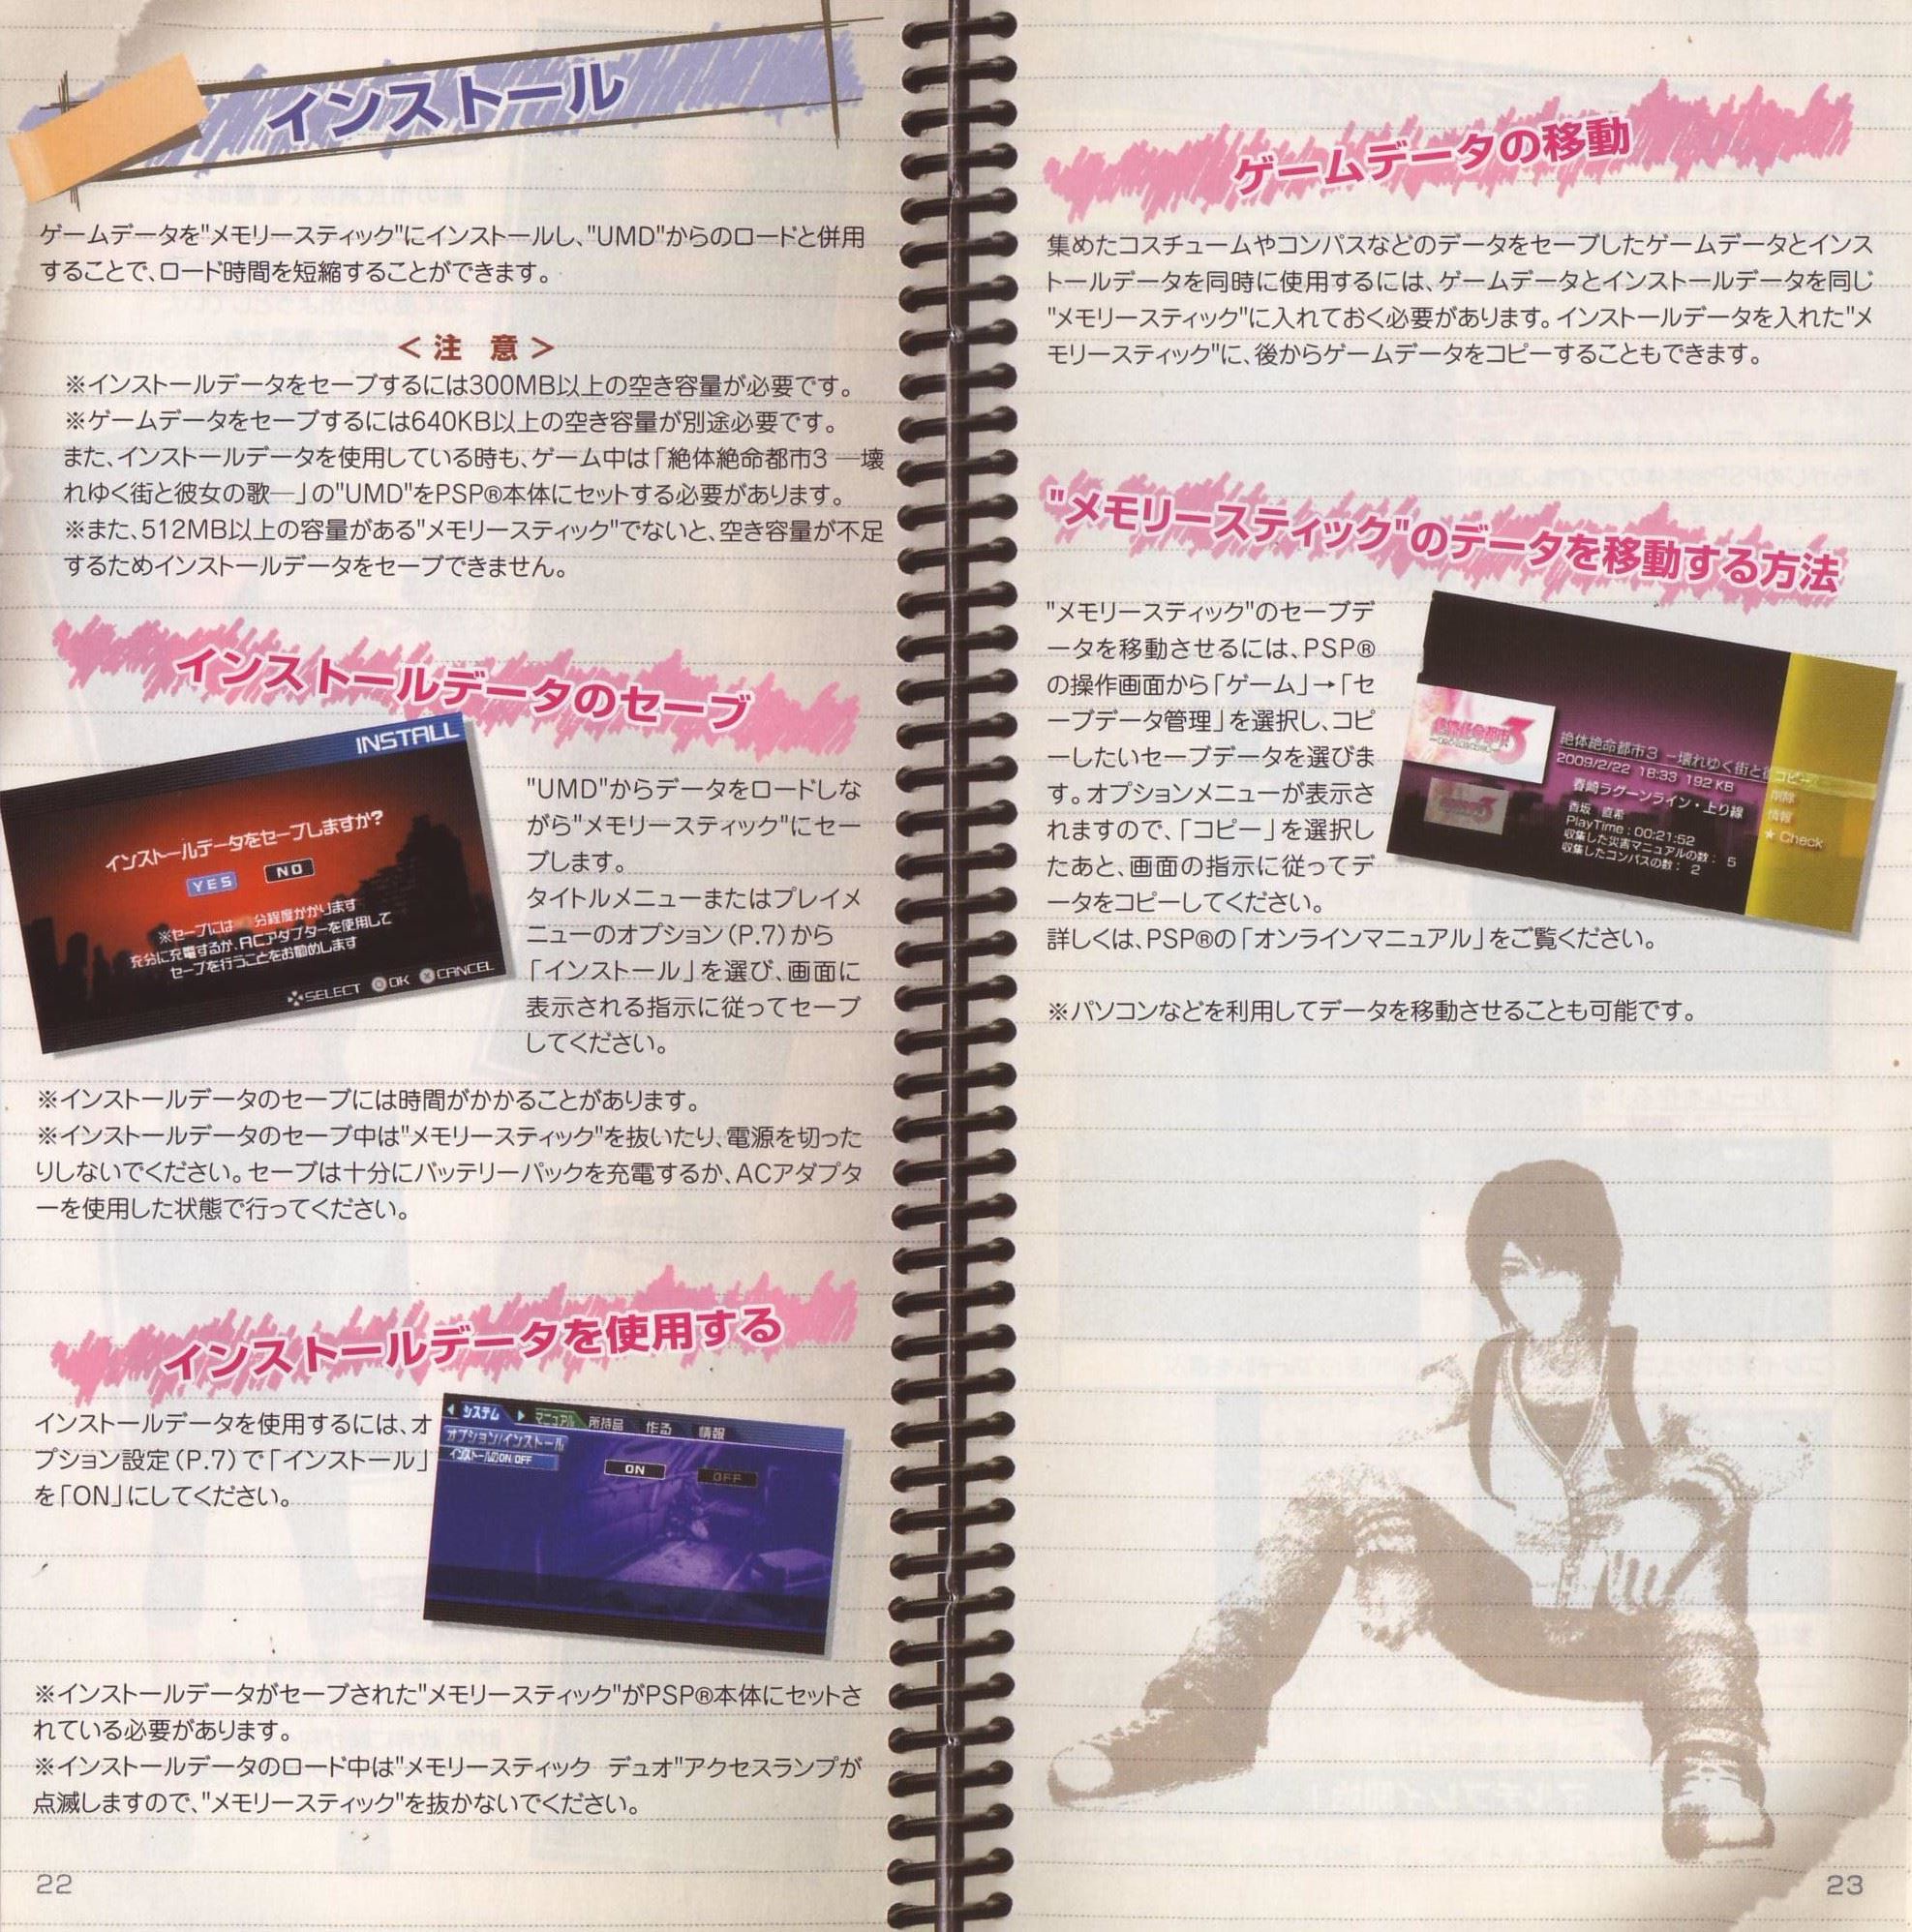 インストール
ゲームデータを"メモリースティック"にインストールし、"UMD"からのロードと併用
することで、ロード時間を短縮することができます。
＜注　意＞
※インストールデータをセーブするには300MB以上の空き容量が必要です。
※ゲームデータをセーブするには640KB以上の空き容量が別途必要です。
また、インストールデータを使用している時も、ゲーム中は「絶体絶命都市3 ―壊
れゆく街と彼女の歌―」の"UMD"をPSP®本体にセットする必要があります。
※また、512MB以上の容量がある"メモリースティック"でないと、空き容量が不足
するためインストールデータをセーブできません。
インストールデータのセーブ
INSTALL
インストールデータをセーブしますか?
YES NO
※セーブには 分程度かかります
充分に充電するか、ACアダプターを使用して
セーブを行うことをお勧めします
SELECT OK CANCEL
"UMD"からデータをロードしな
がら"メモリースティック"にセー
ブします。
タイトルメニューまたはプレイメ
ニューのオプション（P.7）から
「インストール」を選び、画面に
表示される指示に従ってセーブ
してください。
※インストールデータのセーブには時間がかかることがあります。
※インストールデータのセーブ中は"メモリースティック"を抜いたり、電源を切った
りしないでください。セーブは十分にバッテリーパックを充電するか、ACアダプタ
ーを使用した状態で行ってください。
インストールデータを使用する
インストールデータを使用するには、オ
プション設定（P.7）で「インストール」
を「ON」にしてください。
システム マニュアル 所持品 作る 情報
オプション/インストール
インストールのON/OFF
ON OFF
※インストールデータがセーブされた"メモリースティック"がPSP®本体にセットさ
れている必要があります。
※インストールデータのロード中は"メモリースティック デュオ"アクセスランプが
点滅しますので、"メモリースティック"を抜かないでください。
22
ゲームデータの移動
集めたコスチュームやコンパスなどのデータをセーブしたゲームデータとインス
トールデータを同時に使用するには、ゲームデータとインストールデータを同じ
"メモリースティック"に入れておく必要があります。インストールデータを入れた"メ
モリースティック"に、後からゲームデータをコピーすることもできます。
"メモリースティック"のデータを移動する方法
"メモリースティック"のセーブデ
ータを移動させるには、PSP®
の操作画面から「ゲーム」→「セ
ーブデータ管理」を選択し、コピ
ーしたいセーブデータを選びま
す。オプションメニューが表示さ
れますので、「コピー」を選択し
たあと、画面の指示に従ってデ
ータをコピーしてください。
詳しくは、PSP®の「オンラインマニュアル」をご覧ください。
絶体絶命都市3
絶体絶命都市3 －壊れゆく街と
2009/2/22 18:33 192 KB
春崎ラグーンライン・上り線
香坂 直希
PlayTime : 00:21:52
収集した災害マニュアルの数： 5
収集したコンパスの数： 2
コピー
削除
情報
★ Check
※パソコンなどを利用してデータを移動させることも可能です。
23